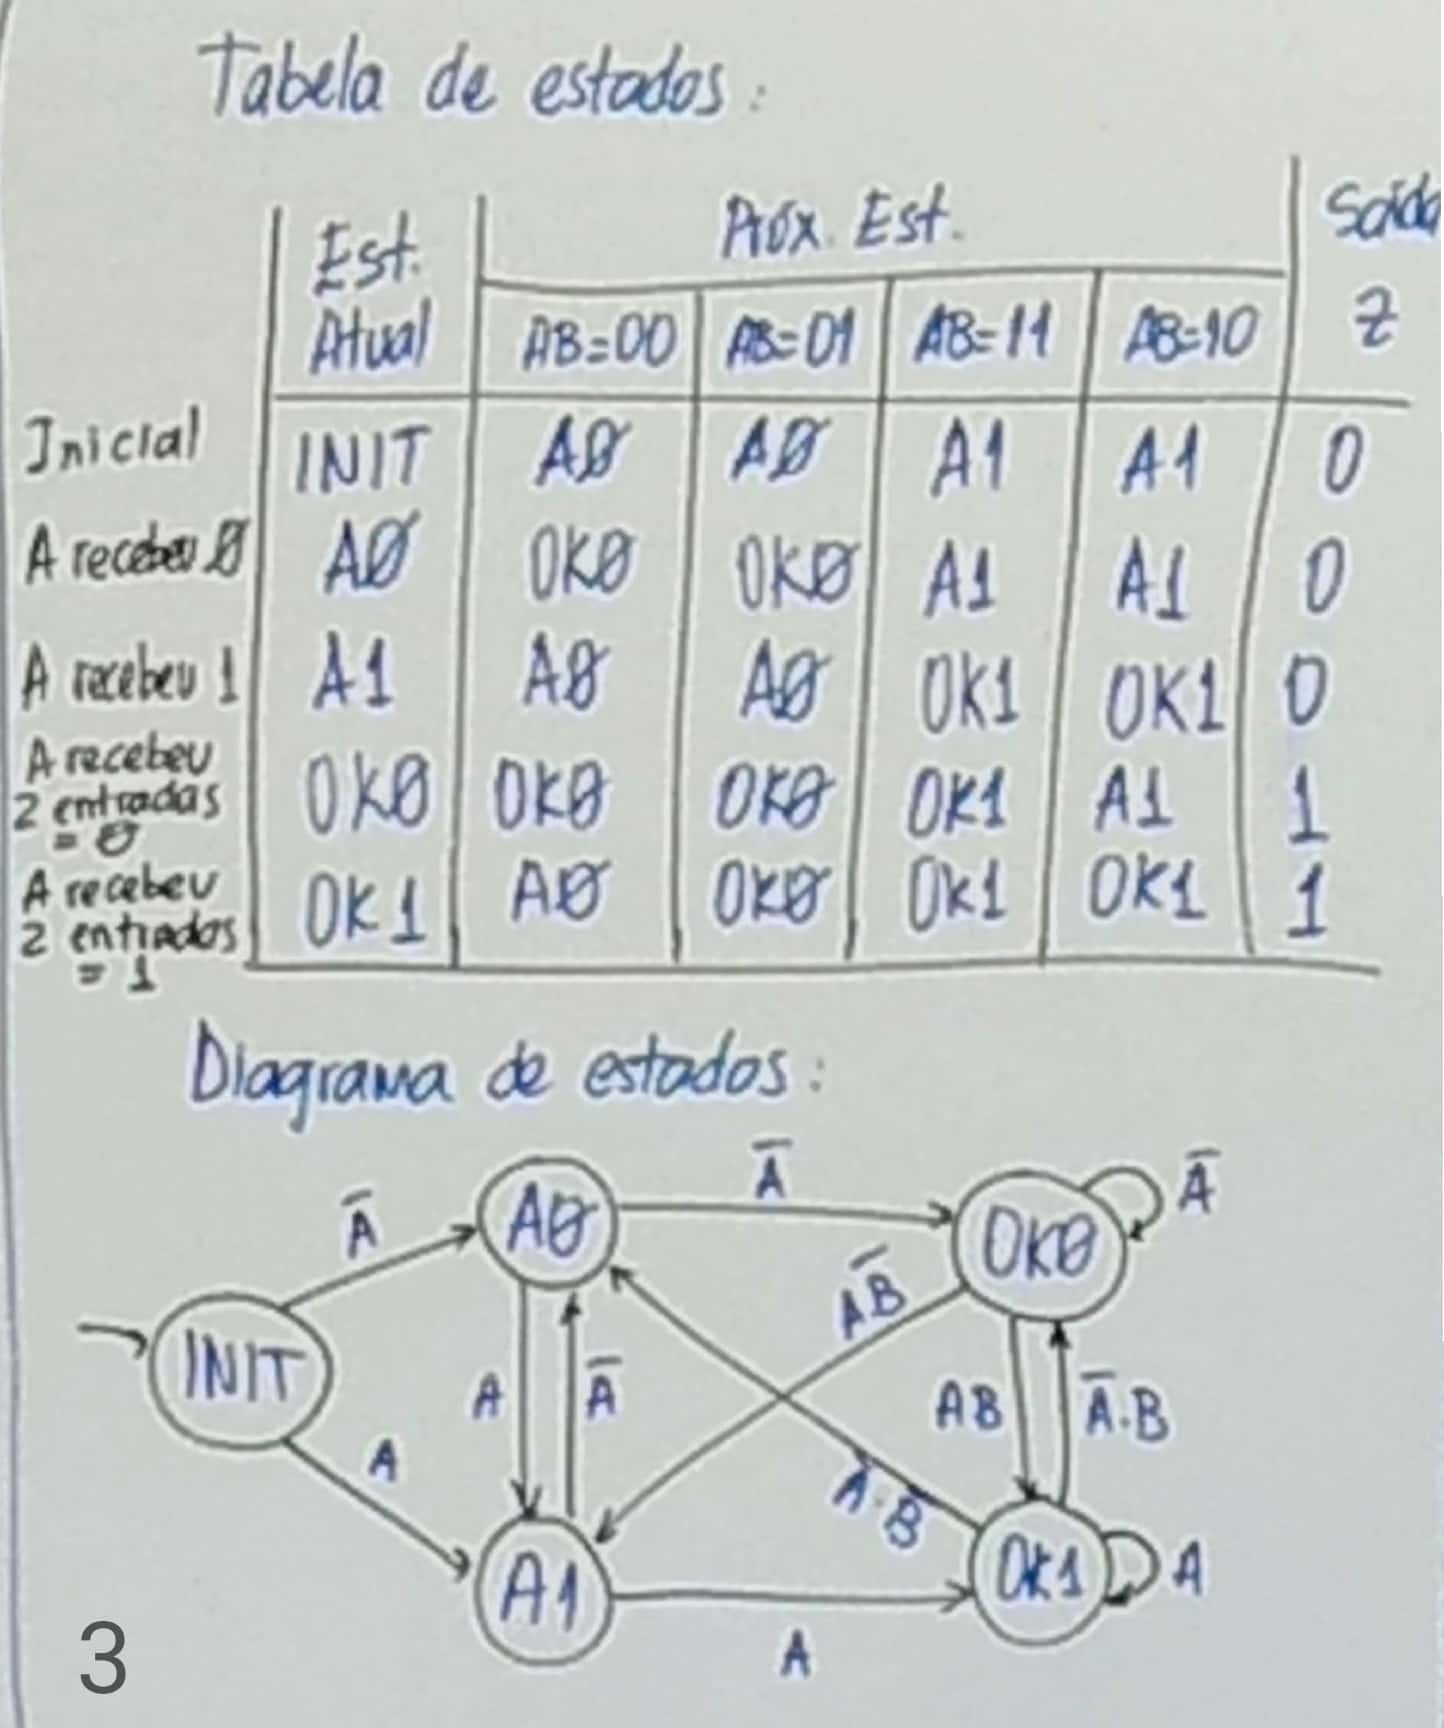 Tabela de estados:
Est. Atual
Próx. Est.
Saída
Z
AB=00 AB=01 AB=11 AB=10
Inicial INIT A0 A0 A1 A1 0
A recebeu 0 A0 OK0 OK0 A1 A1 0
A recebeu 1 A1 A0 A0 OK1 OK1 0
A recebeu 2 entradas = 0 OK0 OK0 OK0 OK1 A1 1
A recebeu 2 entradas = 1 OK1 A0 OK0 OK1 OK1 1
Diagrama de estados:
A̅
A0
A̅
OK0
A̅
INIT
A
A̅
AB̅
AB
A̅·B
A
A̅·B̅
A1
A
OK1
A
3